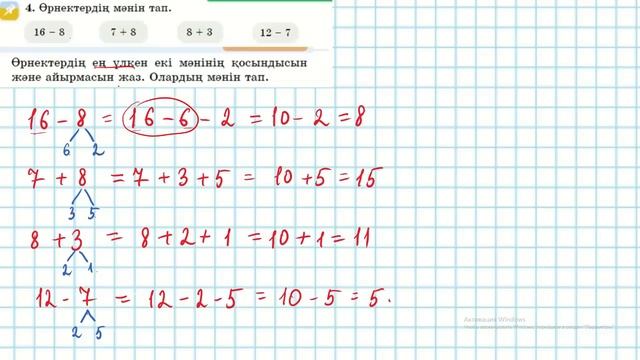 4. Өрнектердің мәнін тап.
16 − 8 7 + 8 8 + 3 12 − 7
Өрнектердің ең үлкен екі мәнінің қосындысын
және айырмасын жаз. Олардың мәнін тап.
16 − 8 = 16 − 6 − 2 = 10 − 2 = 8
6 2
7 + 8 = 7 + 3 + 5 = 10 + 5 = 15
3 5
8 + 3 = 8 + 2 + 1 = 10 + 1 = 11
2 1
12 − 7 = 12 − 2 − 5 = 10 − 5 = 5.
2 5
Активация Windows